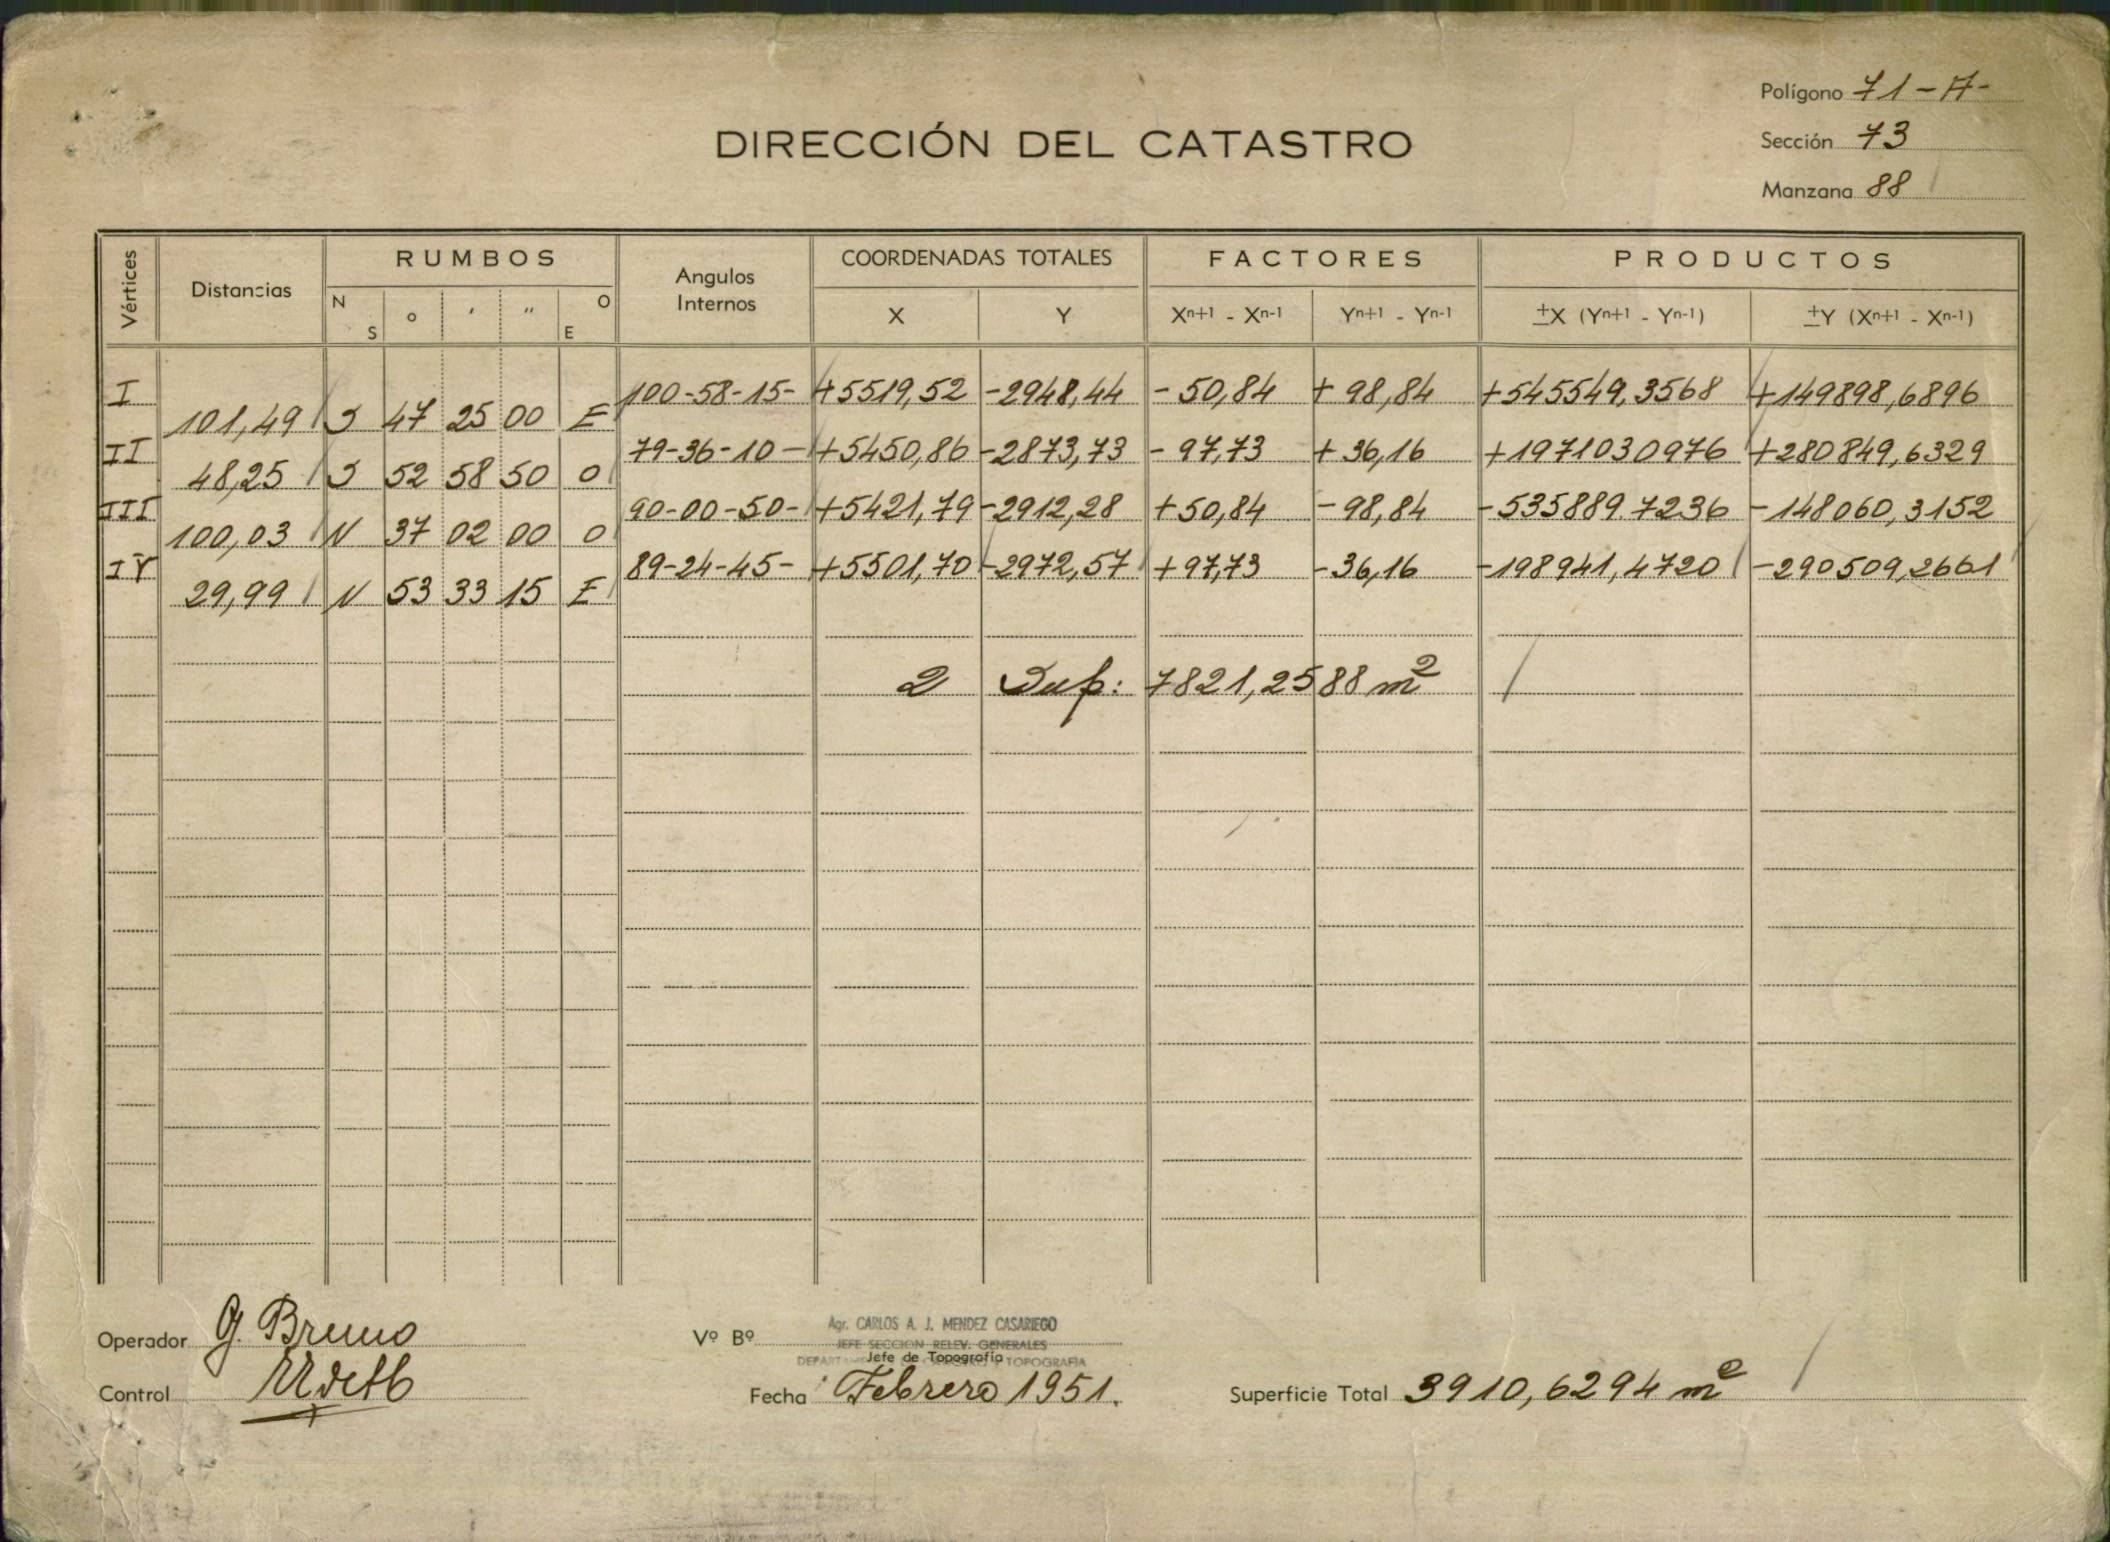 Polígono 71-A-
Sección 73
Manzana 88
DIRECCIÓN DEL CATASTRO
Vértices Distancias RUMBOS Angulos Internos COORDENADAS TOTALES FACTORES PRODUCTOS
N S o ' '' O E X Y Xn+1 - Xn-1 Yn+1 - Yn-1 ±X (Yn+1 - Yn-1) ±Y (Xn+1 - Xn-1)
I 100-58-15- +5519,52 -2948,44 -50,84 +98,84 +545549,3568 +149898,6896
101,49 S 47 25 00 E
II 79-36-10- +5450,86 -2873,73 -97,73 +36,16 +1971030976 +280849,6329
48,25 S 52 58 50 O
III 90-00-50- +5421,79 -2912,28 +50,84 -98,84 -535889.7236 -148060,3152
100,03 N 37 02 00 O
IV 89-24-45- +5501,70 -2972,57 +97,73 -36,16 -198941,4720 -290509,2661
29,99 N 53 33 15 E
2 Sup: 7821,2588 m²
Operador G. Bruno
Control
Vº Bº Agr. CARLOS A. J. MENDEZ CASARIEGO
JEFE SECCION RELEV. GENERALES
Jefe de Topografía
TOPOGRAFIA
Fecha Febrero 1951.
Superficie Total 3910,6294 m²